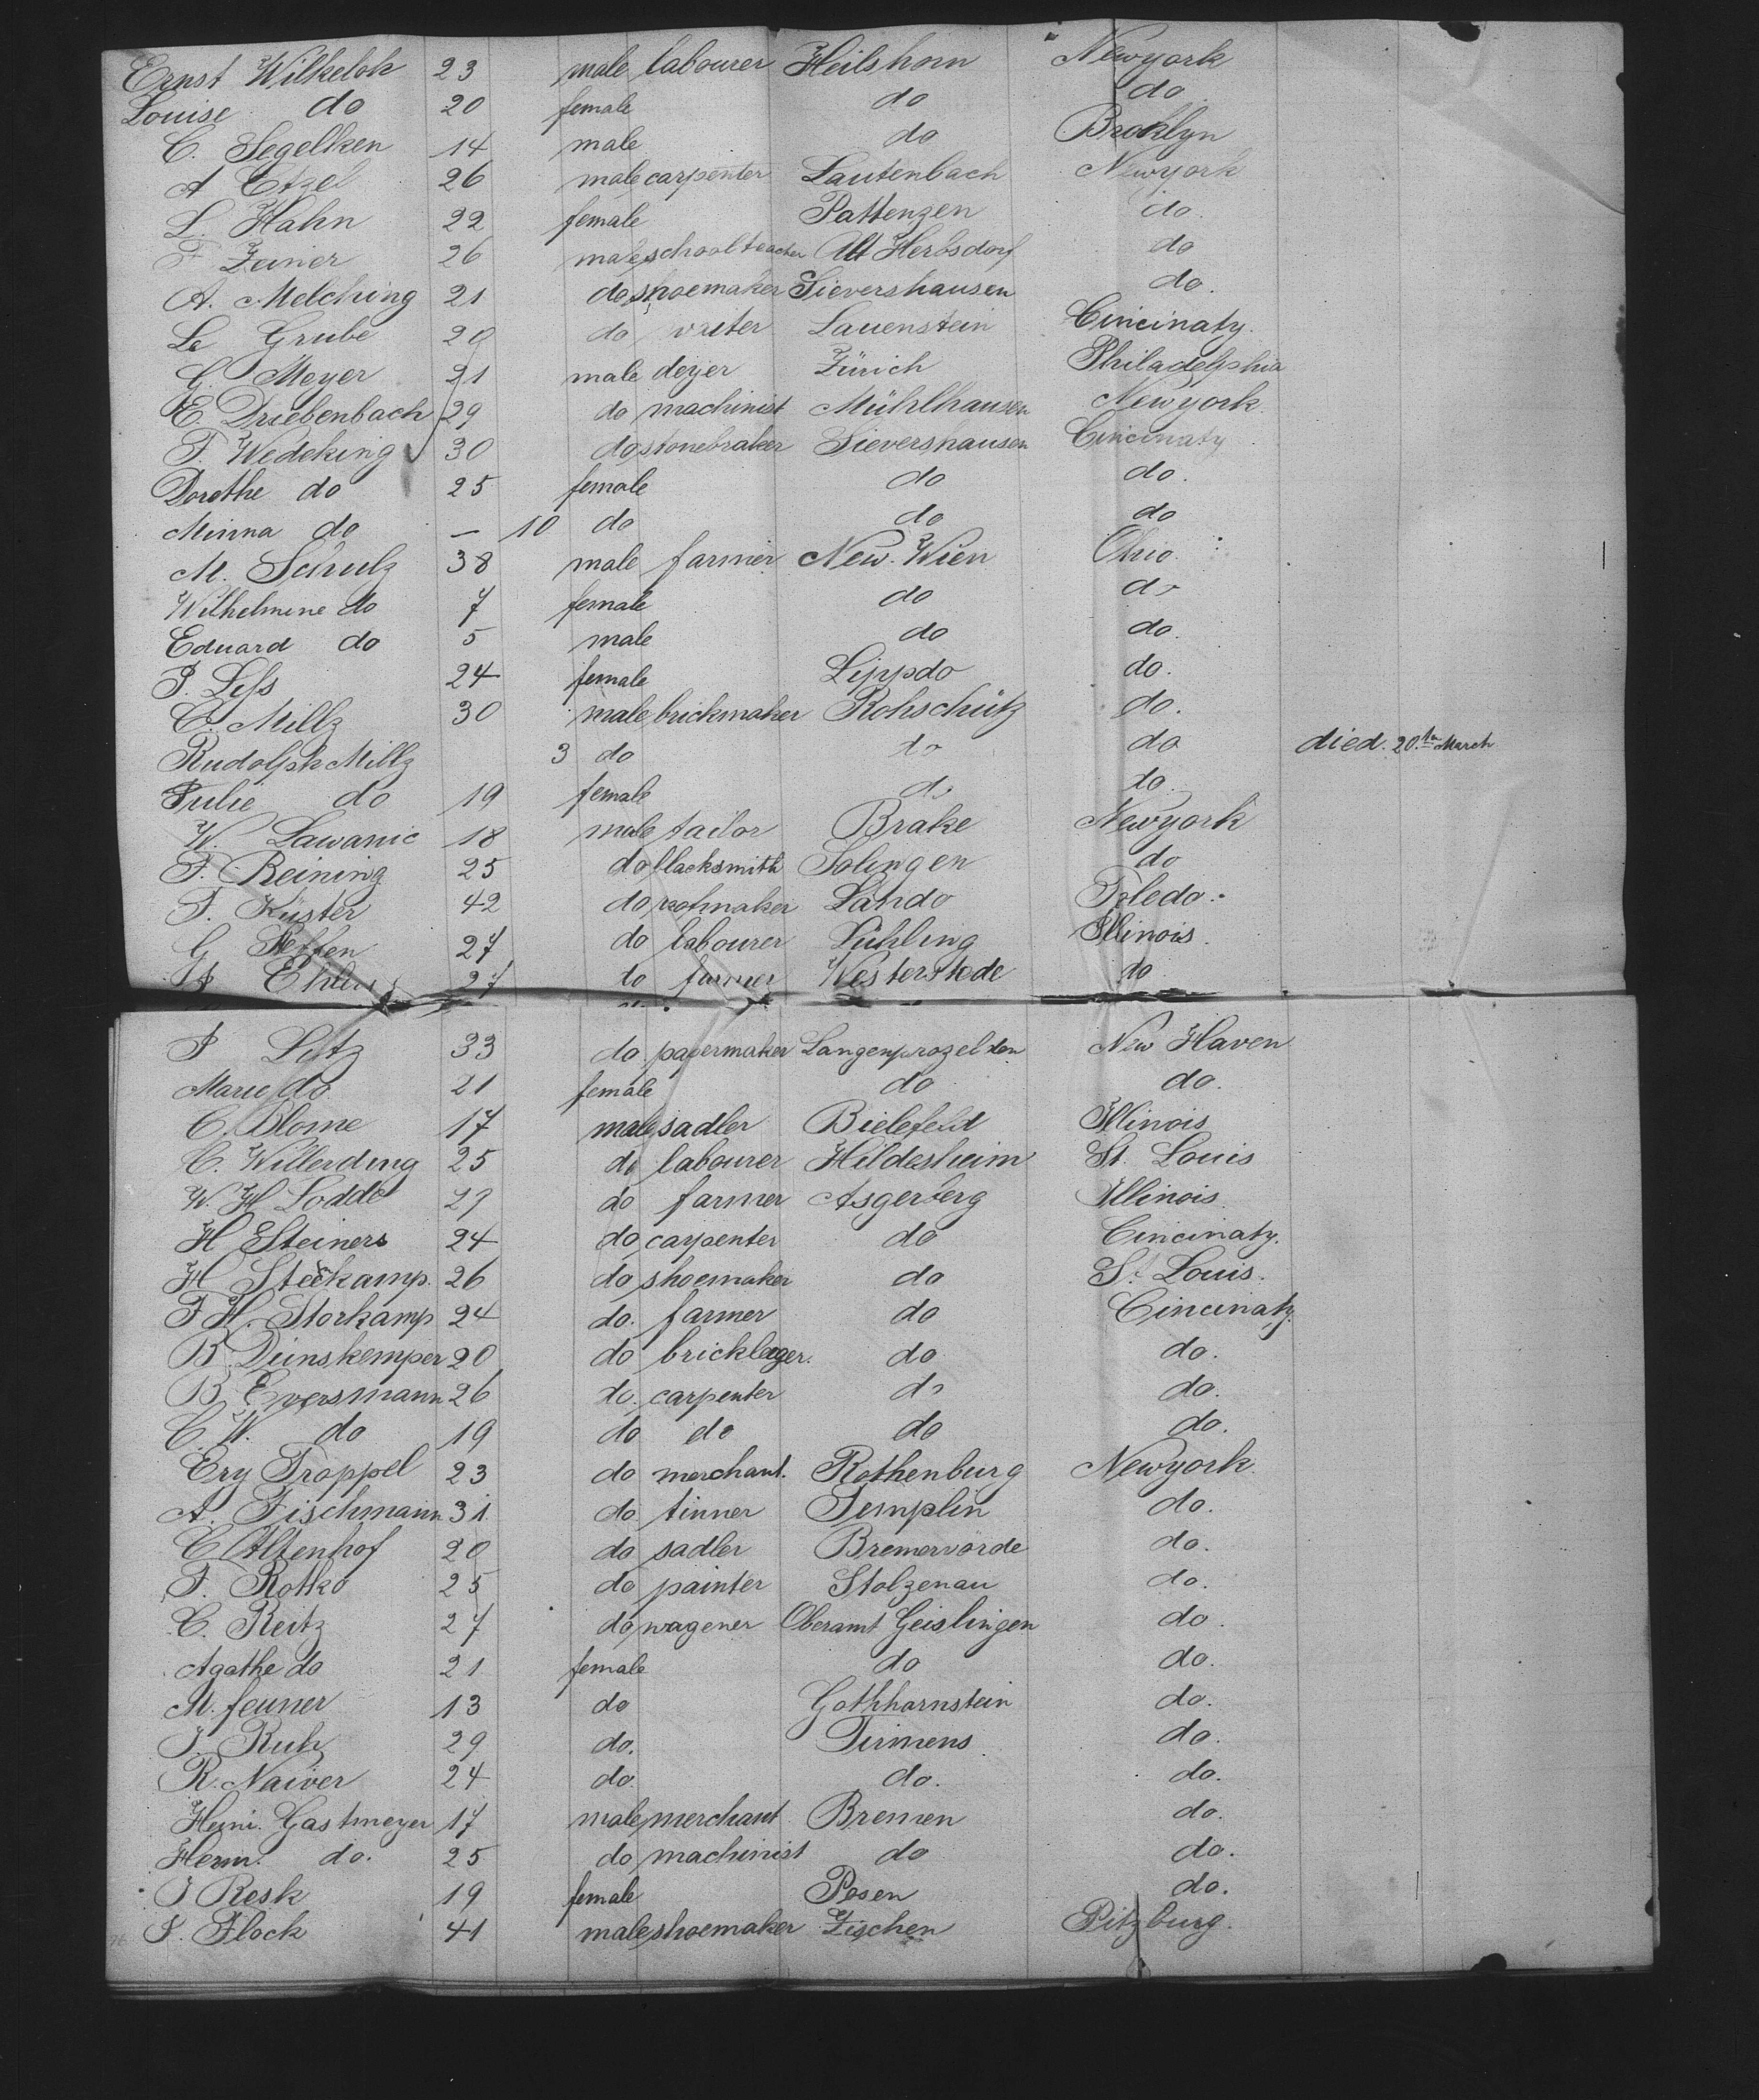 Ernst Wilkeloh 23 male labourer Heilshorn Newyork
Louise do 20 female do do
C. Segelken 14 male do Brooklyn
A Etzel 26 male carpenter Lautenbach Newyork
L. Hahn 22 female Pattenzen do.
F Zeiner 26 male schoolteacher Alt Herbsdorf do
A. Melching 21 do shoemaker Sievershausen do.
Le Grube 20 do Lauenstein Cincinaty.
G. Meyer 21 male deyer Zürich Philadelphia
E. Driebenbach 29 do machinist Mühlhausen Newyork.
F. Wedeking 30 do stonebraker Sievershausen Cincinaty
Dorothe do 25 female do do.
Minna do — 10 do do do
M. Schulz 38 male farmer New. Wien Ohio.
Wilhelmine do 7 female do do
Eduard do 5 male do do.
P. Less 24 female Lippdo do.
C. Millz 30 male brickmaker Rohschütz do.
Rudolph Millz 3 do do do died. 20.th March
Julie do 19 female do do
W. Lawanic 18 male tailor Brake Newyork
F. Reining 25 do blacksmith Solingen do
F. Küster 42 do Lando Toledo.
G 27 do labourer Lühling Illinois.
Ehlers 27 do farmer Westerstede do
P Lutz 33 do. papermaker Langenprozelden New Haven
Marie do 21 female do do.
C. Blome 17 male sadler Bielefeld Illinois
C. Willerding 25 do labourer Hildesheim St. Louis
W. H Lodde 29 do farmer Asgerberg Illinois.
H Steiners 24 do carpenter do Cincinaty.
H Steckamp. 26 do shoemaker do St. Louis.
F H. Storkamp 24 do. farmer do Cincinaty.
B. Dünskemper 20 do bricklager. do do.
B. Eversmann 26 do. carpenter do do.
C. W. do 19 do do do do.
Ery Troppel 23 do merchant. Rothenburg Newyork.
A. Fischmann 31 do. tinner Templin do.
C. Altenhof 20 do sadler Bremervörde do.
F. Rotko 25 do painter Stolzenau do.
C. Reitz 27 do wagener Oberamt Geislingen do.
Agathe do 21 female do do.
M. feuner 13 do Gothharnstein do.
J. Ruh 29 do. Pirmens do.
R. Naiver 24 do. do. do.
Heini. Gastmeyer 17 male merchant Bremen do.
Herm. do. 25 do machinist do do.
J Resk 19 female Posen do.
P. Flock 41 male shoemaker Zischen Pitzburg.